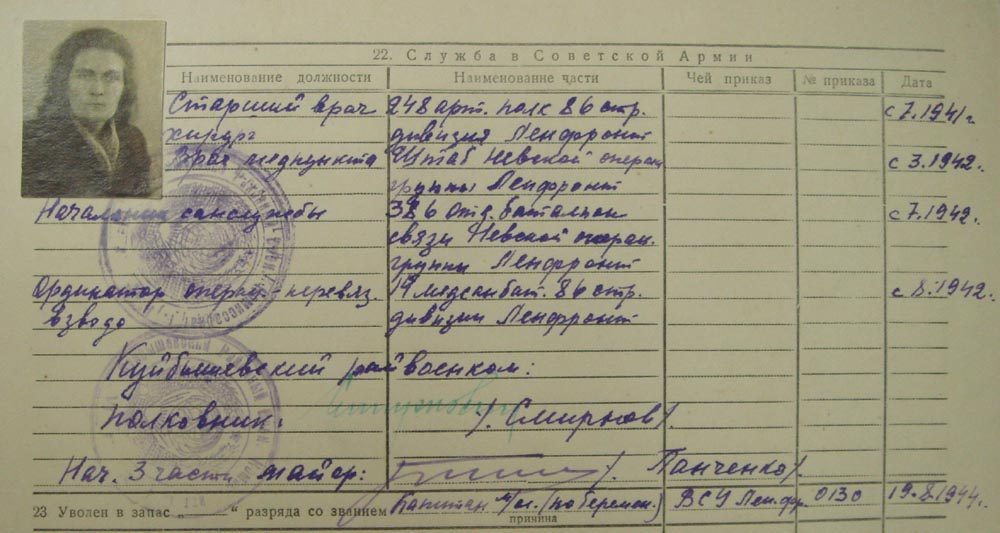 22. Служба в Советской Армии
Наименование должности Наименование части Чей приказ № приказа Дата
Старший врач 248 арт. полк 86 стр. с 7.1941 г.
хирург дивизия Ленфронт
Врач медпункта Штаб Невской операц.
с 3.1942.
группы Ленфронт
Начальник санслужбы 386 отд. батальон с 7.1942.
связи Невской операц.
группы Ленфронт
Ординатор операц. перевяз. медсанбат. 86 стр. с 8.1942.
взвода дивизии Ленфронт
Куйбышевский райвоенком:
полковник: /. Смирнов/.
Нач. 3 части майор: /. Панченко/.
23 Уволен в запас „ “ разряда со званием Капитан м/сл. (по беремен.) ВСУ Лен.фр. 0130 19.8.1944г.
причина